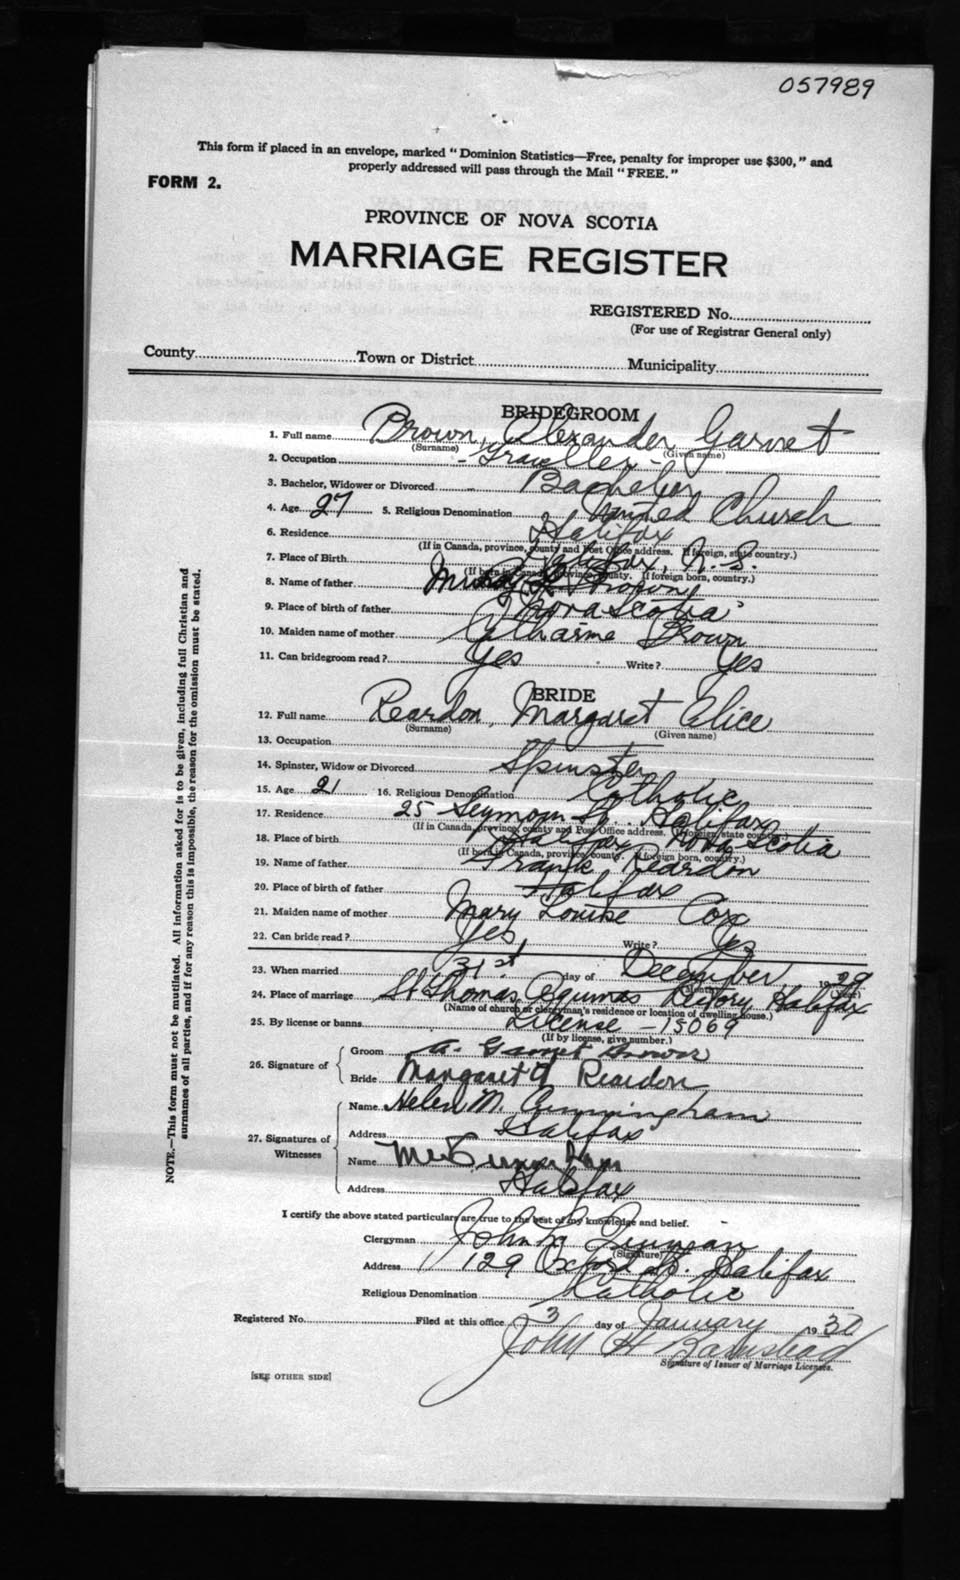 057989
This form if placed in an envelope, marked "Dominion Statistics—Free, penalty for improper use $300," and
properly addressed will pass through the Mail "FREE."
FORM 2.
PROVINCE OF NOVA SCOTIA
MARRIAGE REGISTER
REGISTERED No.
(For use of Registrar General only)
County Town or District Municipality
BRIDEGROOM
1. Full name Brown, Alexander Garnet
(Surname) (Given name)
2. Occupation - Traveller -
3. Bachelor, Widower or Divorced Bachelor
4. Age 27 5. Religious Denomination United Church
6. Residence Halifax
(If in Canada, province, county and Post Office address. If foreign, state country.)
7. Place of Birth Halifax, N.S.
(If born in Canada, province, county. If foreign born, country.)
8. Name of father Brown
9. Place of birth of father Nova Scotia
10. Maiden name of mother Catharine Brown
11. Can bridegroom read? Yes Write? Yes
BRIDE
12. Full name Reardon, Margaret Alice
(Surname) (Given name)
13. Occupation
14. Spinster, Widow or Divorced Spinster
15. Age 21 16. Religious Denomination Catholic
17. Residence 25 Seymour St. Halifax
(If in Canada, province, county and Post Office address. If foreign, state country.)
18. Place of birth Halifax Nova Scotia
(If born in Canada, province, county. If foreign born, country.)
19. Name of father Frank Reardon
20. Place of birth of father Halifax
21. Maiden name of mother Mary Louise Cox
22. Can bride read? Yes Write? Yes
23. When married 31st day of December 1929
(Month) (Year)
24. Place of marriage St Thomas Aquinas Rectory, Halifax
(Name of church or clergyman's residence or location of dwelling house.)
25. By license or banns License - 15069
(If by license, give number.)
26. Signature of Groom A. Garnet Brown
Bride Margaret A Reardon
27. Signatures of Witnesses Name Helen M. Cunningham
Address Halifax
Name
Address Halifax
I certify the above stated particulars are true to the best of my knowledge and belief.
Clergyman John L.
(Signature)
Address 129 Oxford St. Halifax
Religious Denomination Catholic
Registered No. Filed at this office 3 day of January 1930
John H Barnstead
Signature of Issuer of Marriage Licenses.
[SEE OTHER SIDE]
NOTE.—This form must not be mutilated. All information asked for is to be given, including full Christian and
surnames of all parties, and if for any reason this is impossible, the reason for the omission must be stated.